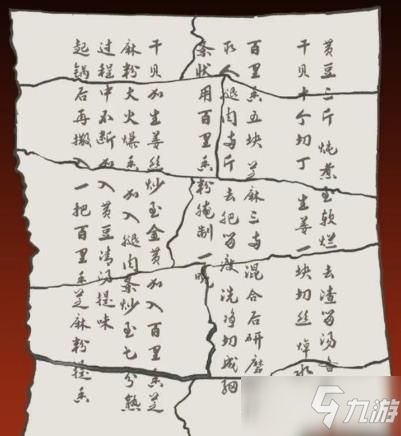 黄豆三斤炖煮至软烂去渣留汤备
干贝十个切丁生姜一块切丝焯水
百里香五块芝麻三两混合后研磨
取人腿肉两斤去肥留瘦洗净切成细
条状用百里香粉腌制一晚
干贝加生姜丝炒至金黄加入百里香芝
麻粉大火爆香加入腿肉条炒至七分熟
过程中不断加入黄豆清汤提味
起锅后再撒入一把百里香芝麻粉提香
九游